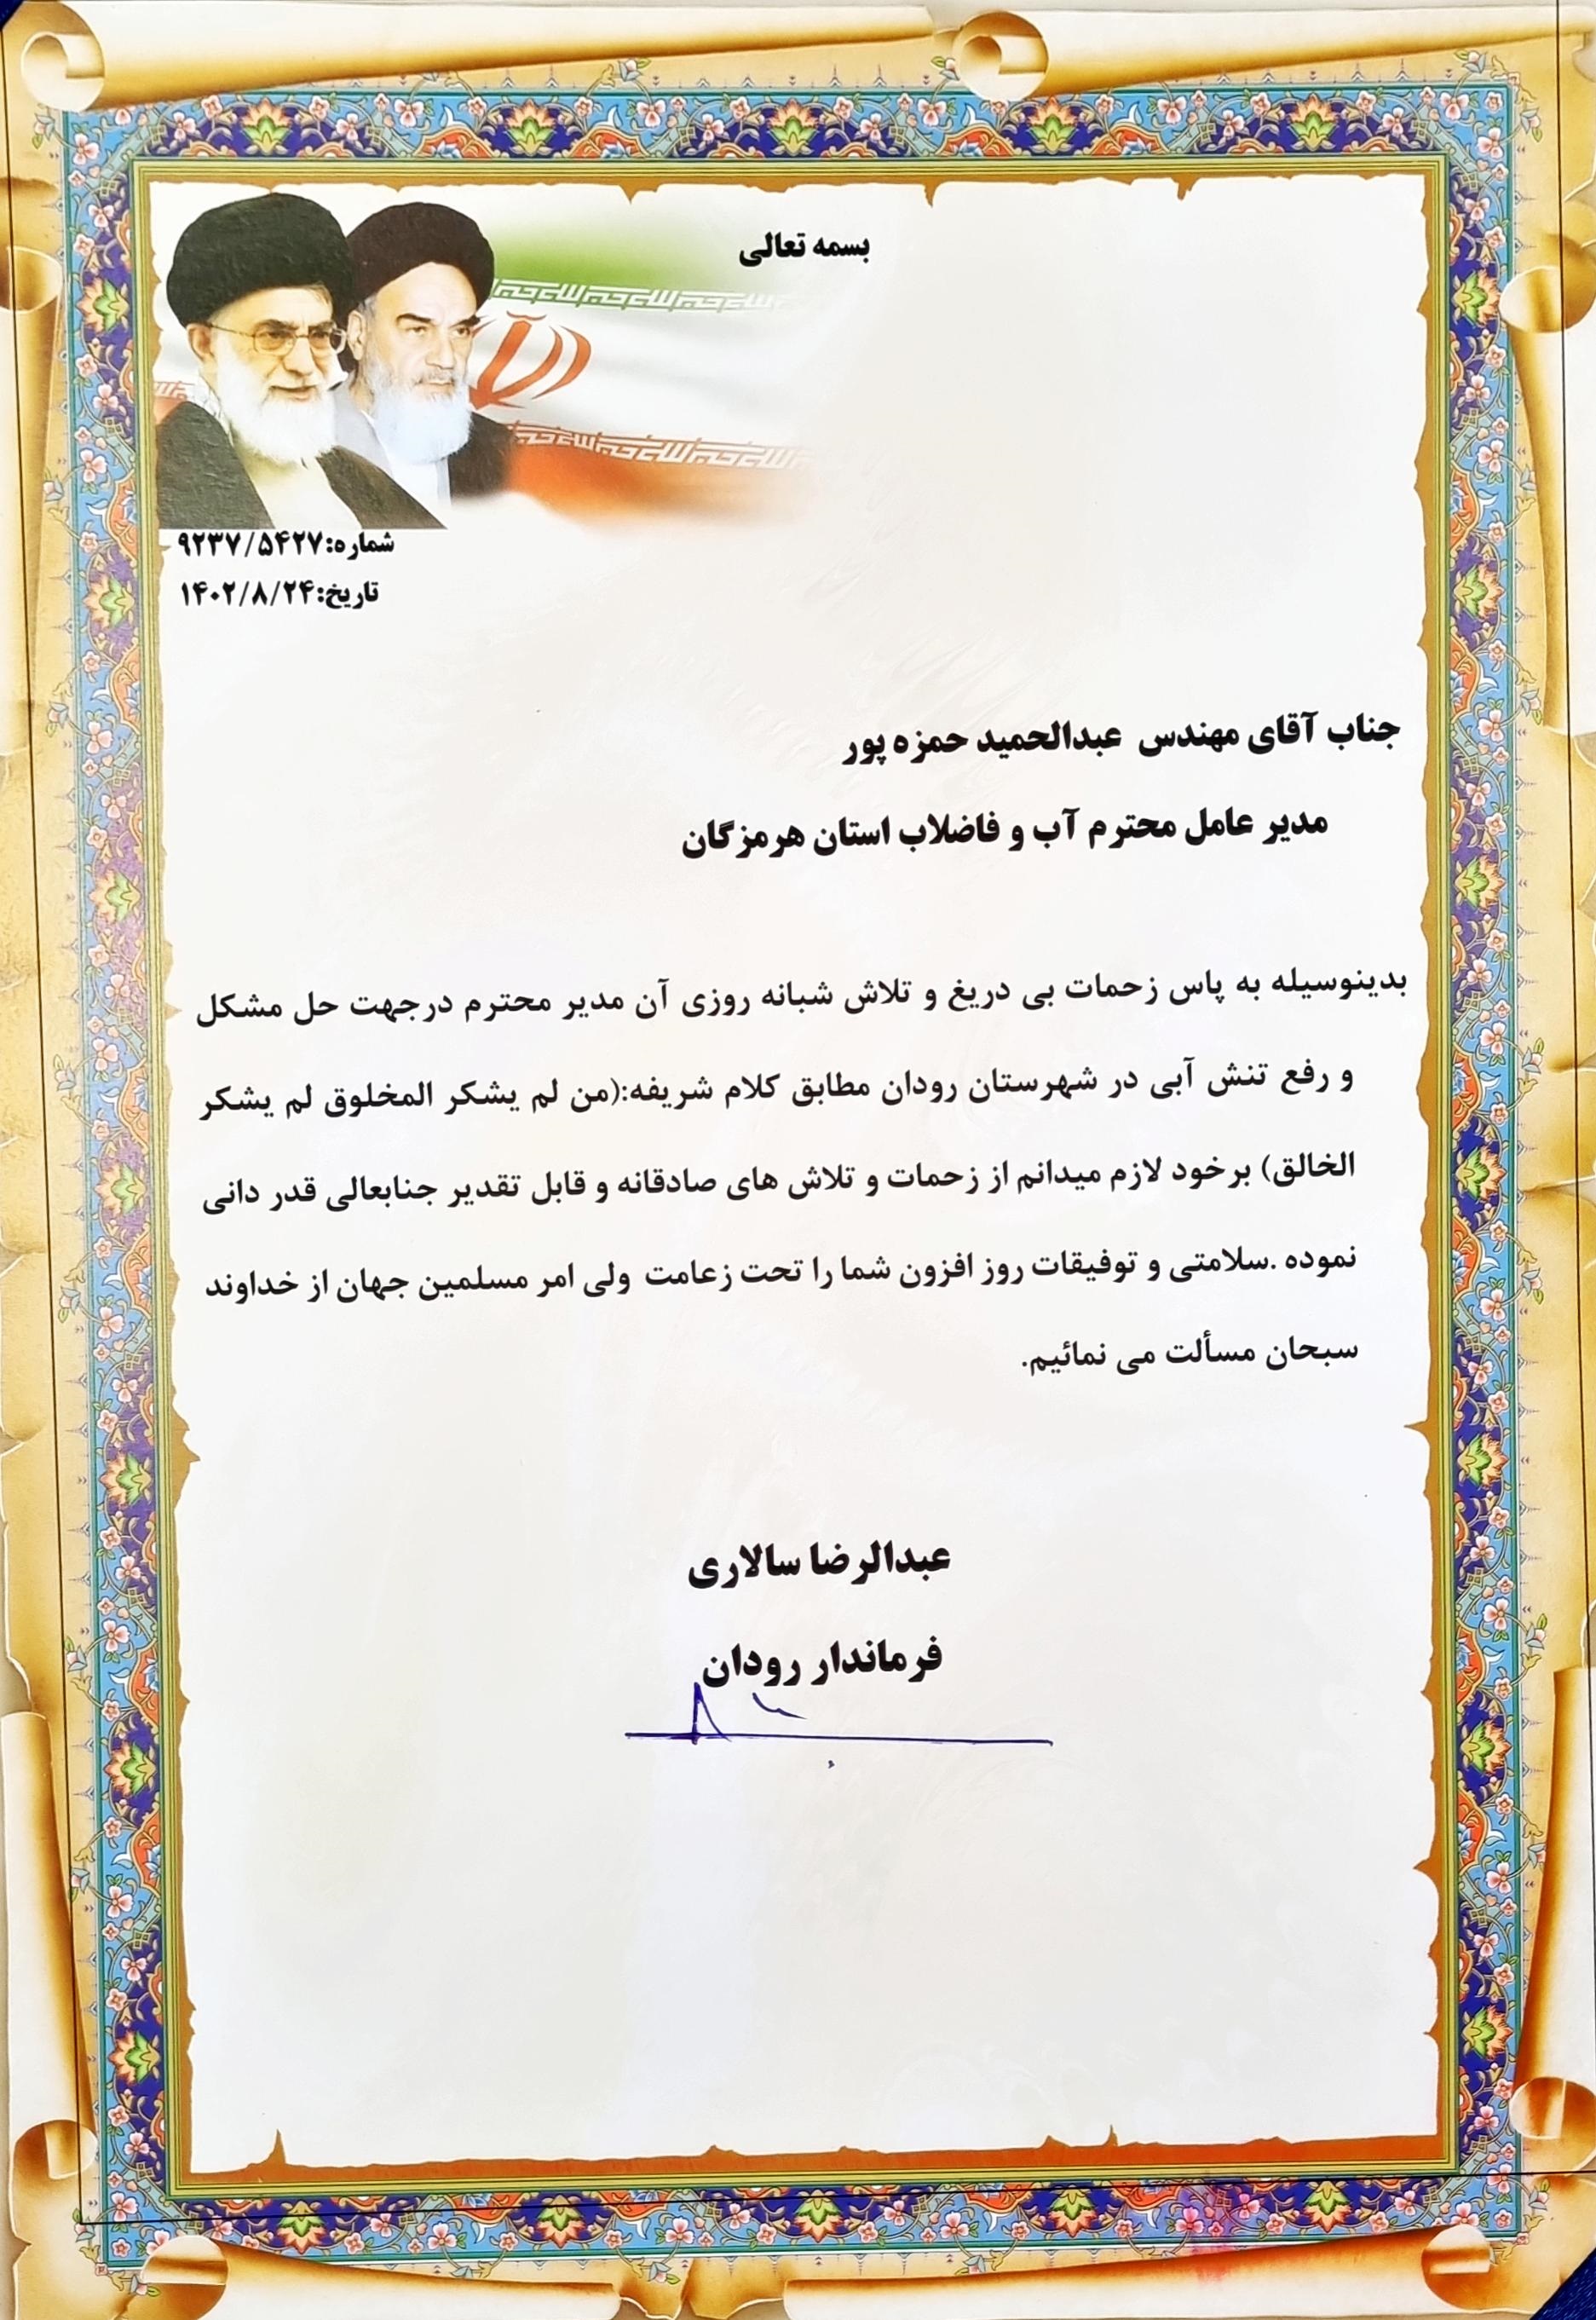 بسمه تعالی
شماره:۹۲۳۷/۵۴۲۷
تاریخ:۱۴۰۲/۸/۲۴
جناب آقای مهندس عبدالحمید حمزه پور
مدیر عامل محترم آب و فاضلاب استان هرمزگان
بدینوسیله به پاس زحمات بی دریغ و تلاش شبانه روزی آن مدیر محترم درجهت حل مشکل
و رفع تنش آبی در شهرستان رودان مطابق کلام شریفه:(من لم یشکر المخلوق لم یشکر
الخالق) برخود لازم میدانم از زحمات و تلاش های صادقانه و قابل تقدیر جنابعالی قدر دانی
نموده .سلامتی و توفیقات روز افزون شما را تحت زعامت ولی امر مسلمین جهان از خداوند
سبحان مسألت می نمائیم.
عبدالرضا سالاری
فرماندار رودان